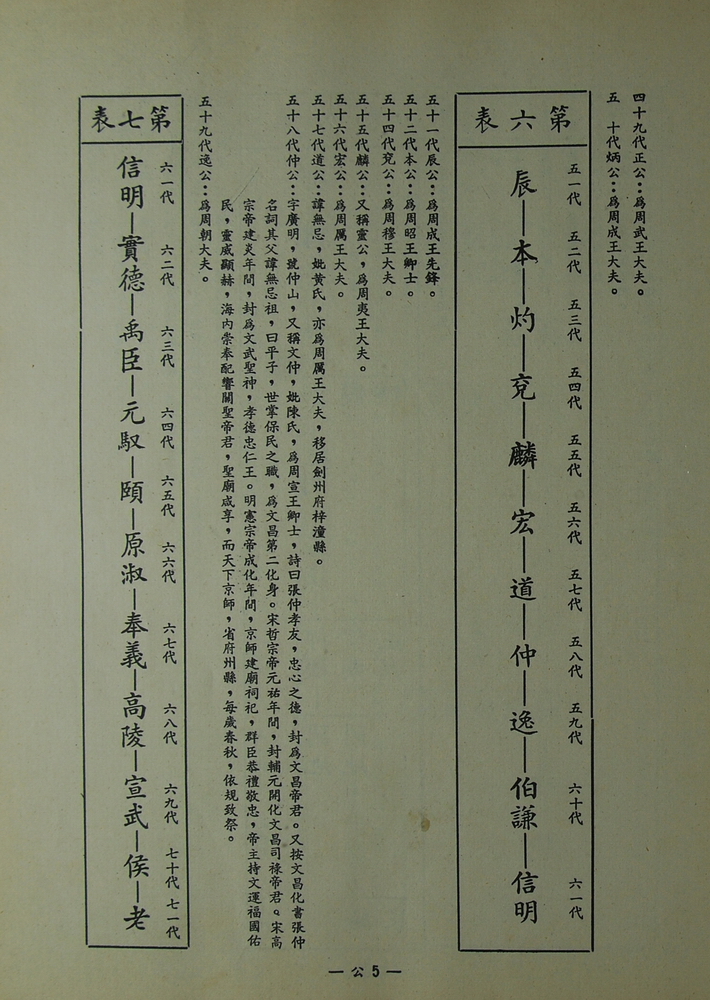 四十九代正公：爲周武王大夫。
五　十代炳公：爲周成王大夫。
第六表
五一代　五二代　五三代　五四代　五五代　五六代　五七代　五八代　五九代　六十代　六一代
辰—本—灼—兗—麟—宏—道—仲—逸—伯謙—信明
五十一代辰公：爲周成王先鋒。
五十二代本公：爲周昭王卿士。
五十四代兗公：爲周穆王大夫。
五十五代麟公：又稱靈公，爲周夷王大夫。
五十六代宏公：爲周厲王大夫。
五十七代道公：諱無忌，妣黃氏，亦爲周厲王大夫，移居劍州府梓潼縣。
五十八代仲公：字廣明，號仲山，又稱文仲，妣陳氏，爲周宣王卿士，詩曰張仲孝友，忠心之德，封爲文昌帝君。又按文昌化書張仲
名詞其父諱無忌祖，曰平子，世掌保民之職，爲文昌第二化身。宋哲宗帝元祐年間，封輔元開化文昌司祿帝君。宋高
宗帝建炎年間，封爲文武聖神，孝德忠仁王。明憲宗帝成化年間，京師建廟祠祀，群臣恭禮敬忠，帝主持文運福國佑
民，靈威顯赫，海內崇奉配響關聖帝君，聖廟咸享，而天下京師，省府州縣，每歲春秋，依規致祭。
五十九代逸公：爲周朝大夫。
第七表
六一代　六二代　六三代　六四代　六五代　六六代　六七代　六八代　六九代　七十代　七一代
信明—實德—禹臣—元馭—頤—原淑—奉義—高陵—宣武—侯—老
—公5—